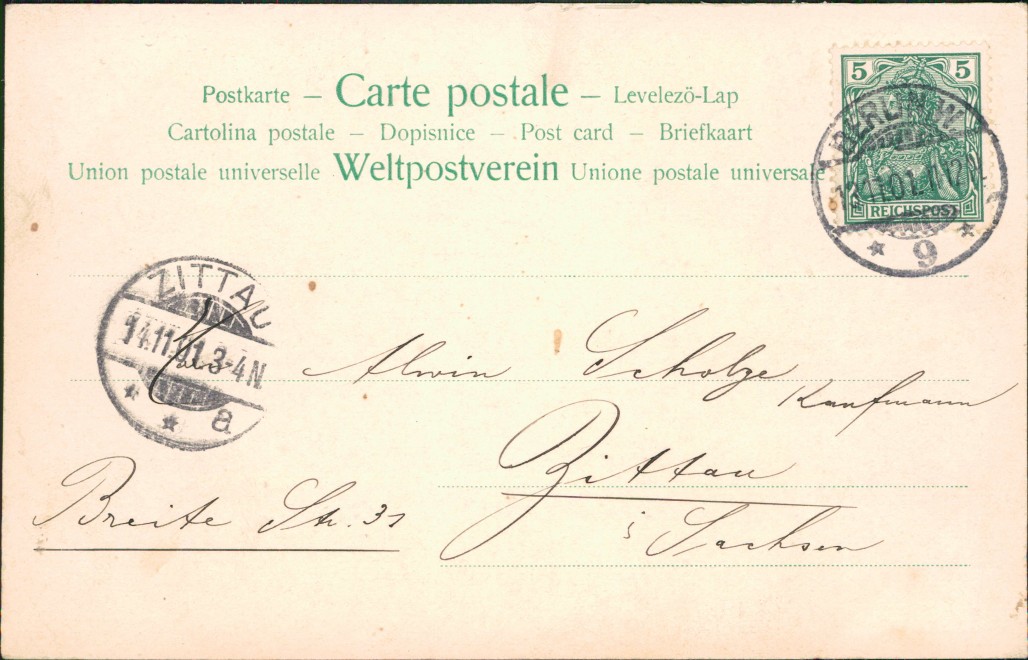 Postkarte – Carte postale – Levelezö-Lap
Cartolina postale – Dopisnice – Post card – Briefkaart
Union postale universelle Weltpostverein Unione postale universale
5 5
REICHSPOST
BERLIN W.
11.01.11-12
* 9 *
ZITTAU
14.11.01.3-4N.
* * a
Alwin Scholze
Kaufmann
Zittau
i Sachsen
Breite Str. 31